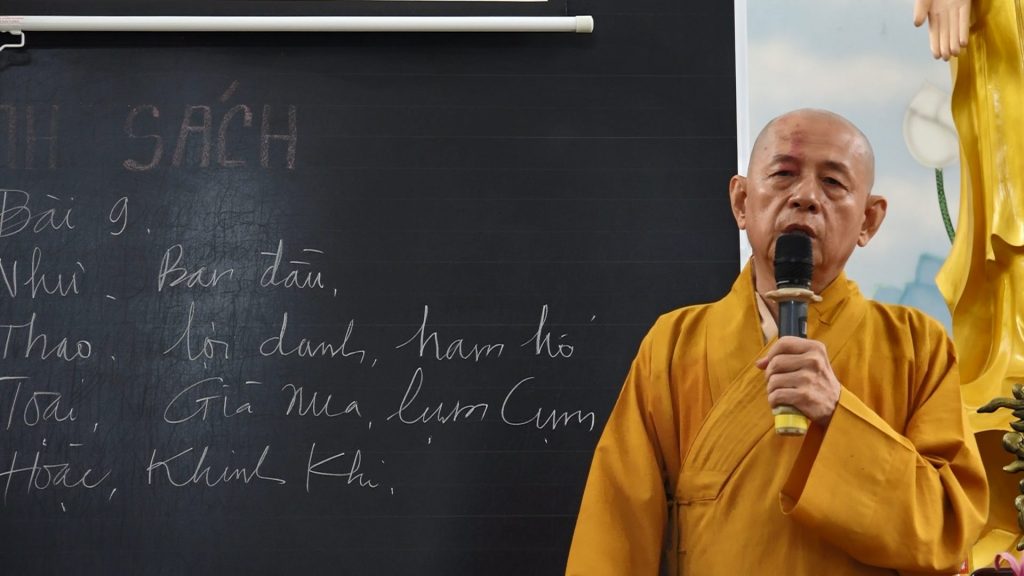 SÁCH
Bài 9.
Như. Ban đầu,
Thao. lợi danh, ham hố
Toại, Già nua, lụm cụm
Hoặc, Khinh Khi,